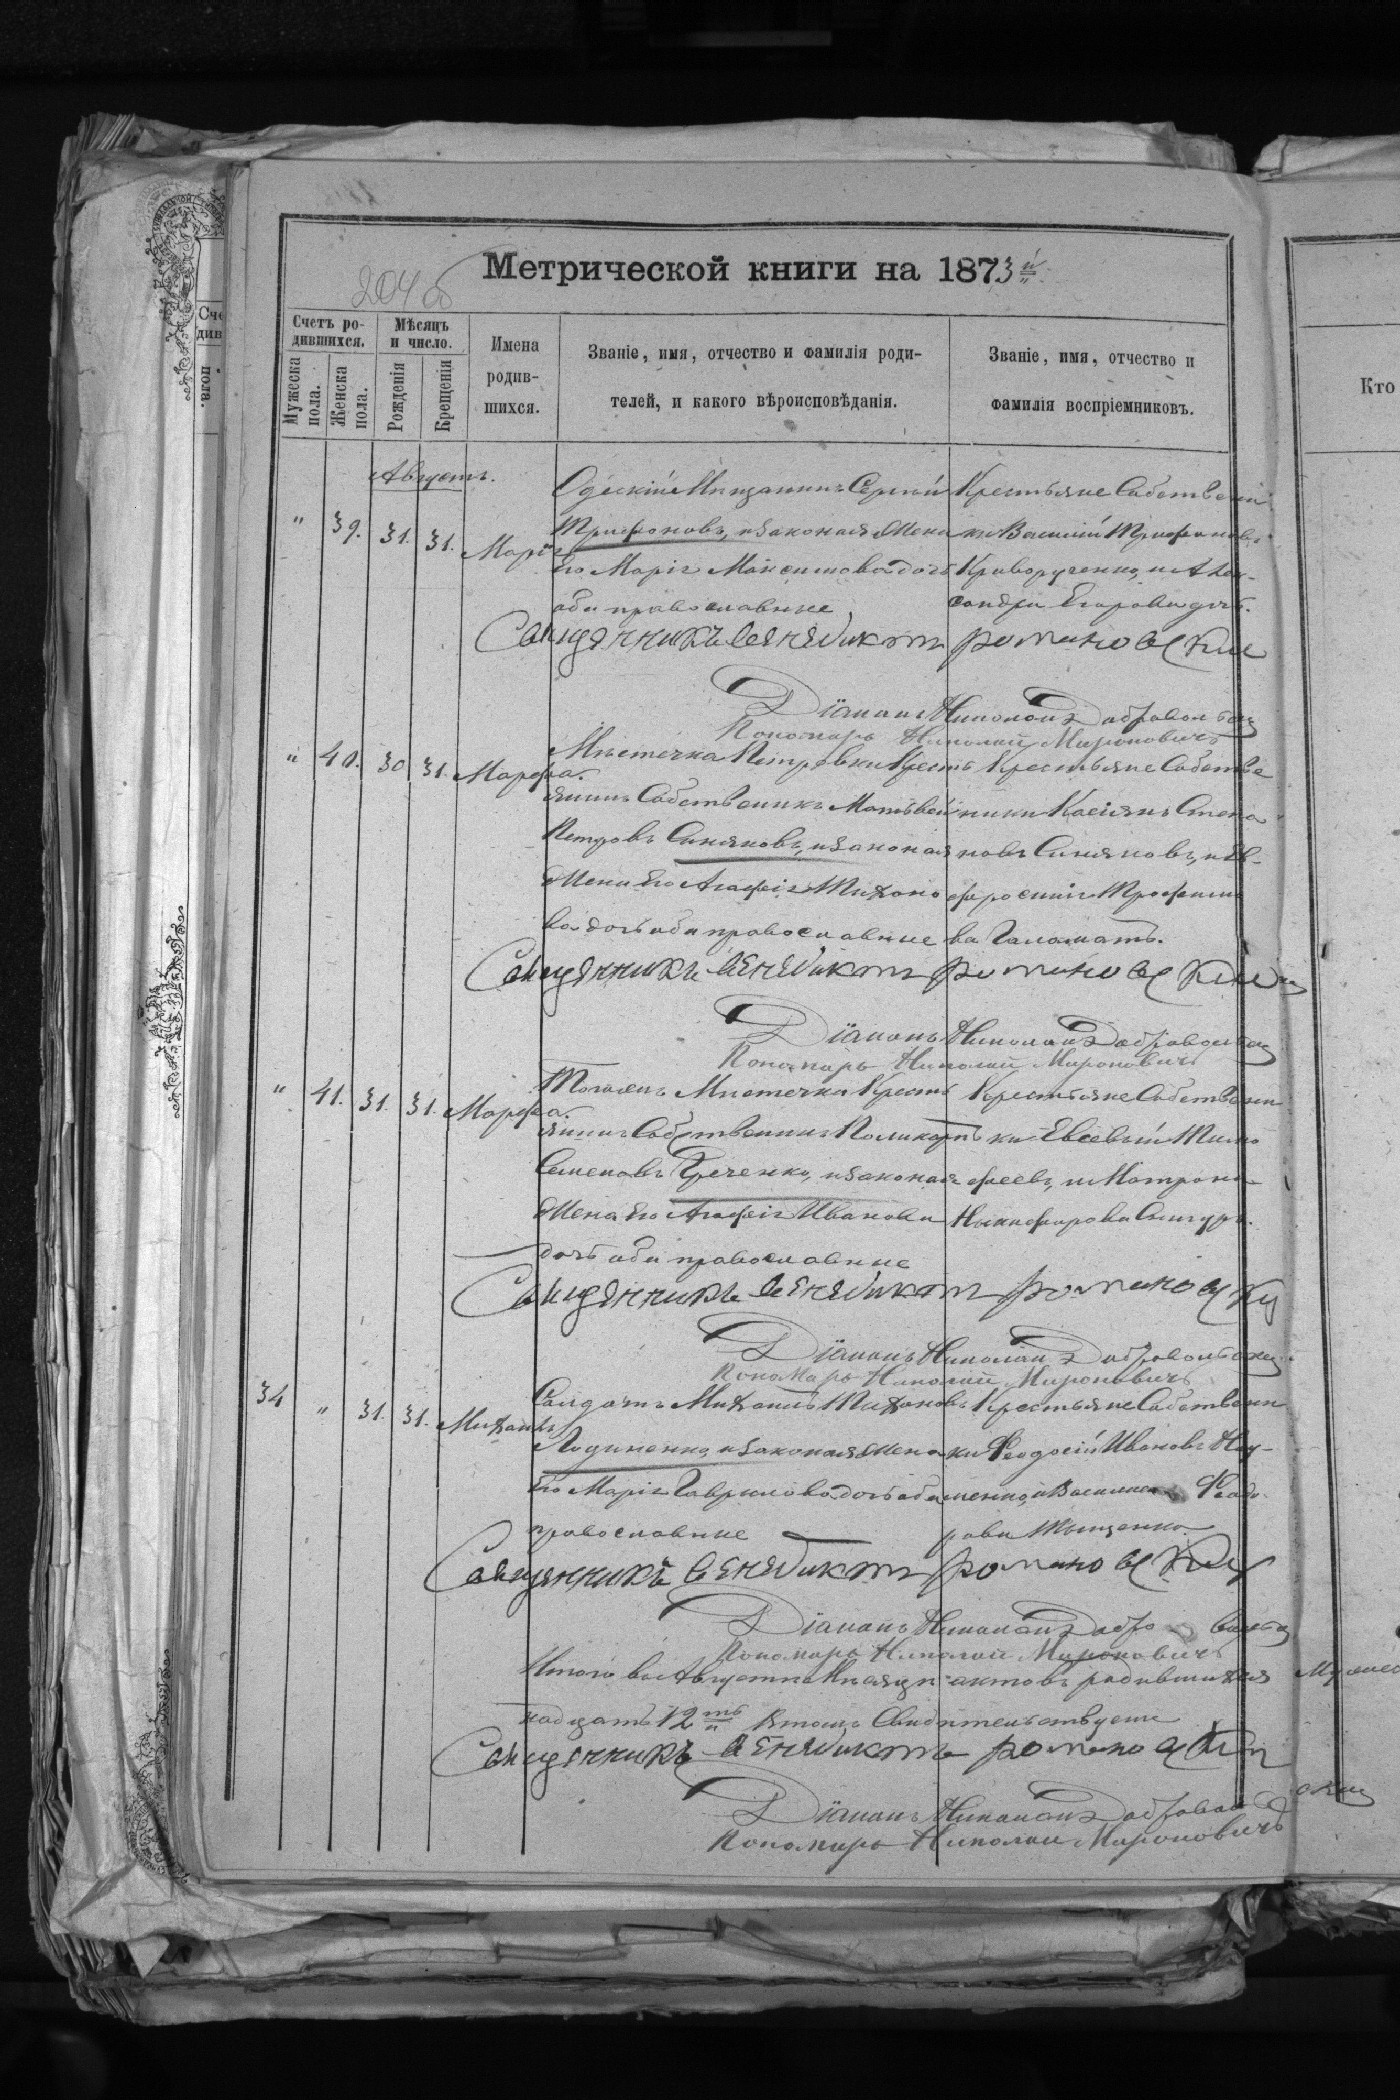 Метрической книги на 1873й
204 об
Счетъ ро-
дившихся.
Мѣсяцъ
и число.
Мужеска
пола.
Женска
пола.
Рожденія
Крещенія
Имена
родив-
шихся.
Званіе, имя, отчество и фамилія роди-
телей, и какого вѣроисповѣданія.
Званіе, имя, отчество и
фамилія воспріемниковъ.
Кто
Августъ.
" 39. 31. 31. Марія
Одескій Мищанинъ Сергій
Трифоновъ, и законая жена
Его Марія Максимова дочь
оби православные
Крестьяне Собствени
ки Василий Трифановъ
Криворученко, и Алек-
сандра Егорова дочь.
Священникъ Венедиктъ романовский
Діаконъ Николай Добровольски
Пономарь Николай Мироновичъ
" 40. 30 31. Марфа.
Мистечка Петровки Кресть
янинъ Собственикъ Матвѣй
Петровъ Синяковъ, и законая
жена Его Агафія Тихоно
ва дочь оби православные
Крестьяне Собстве
ники Касіянъ Степа
новъ Синяковъ, и Ев-
фросинія Трофимо
ва Галамать.
Священникъ Венедиктъ романовский
Діаконъ Николай Добровольски
Пономарь Николай Мироновичъ
" 41. 31. 31. Марфа.
Тогожъ Мистечка Кресть
янинъ Собственикъ Поликарпъ
Семеновъ Гречеко, и законая
жена Его Агафія Иванова
дочь оби православные
Крестьяне Собствени
ки Евсевый Тимо
феевъ, и Матрона
Никифорова
Священникъ Венедиктъ романовски
Діаконъ Николай Добровольски
Пономарь Николай Мироновичъ
34 " 31. 31. Михаилъ
Солдатъ Михаилъ Тихоновъ
Лодиненко, и законая жена
Его Марія Гаврилова дочь оби
православные
Крестьяне Собствени
ки Феодосій Ивановъ
менко, и Василиса Феодо
рова Тыщенко.
Священникъ Венедиктъ романовский
Діаконъ Николай Добровольск
Пономарь Николай Мироновичъ
Итого въ Августѣ Мѣсяцѣ актовъ родившихся
надцать 12ть Втомъ Свидѣтельствуемъ
Священникъ Венедиктъ романовский
Діаконъ Николай Доброволь
Пономарь Николай Мироновичъ